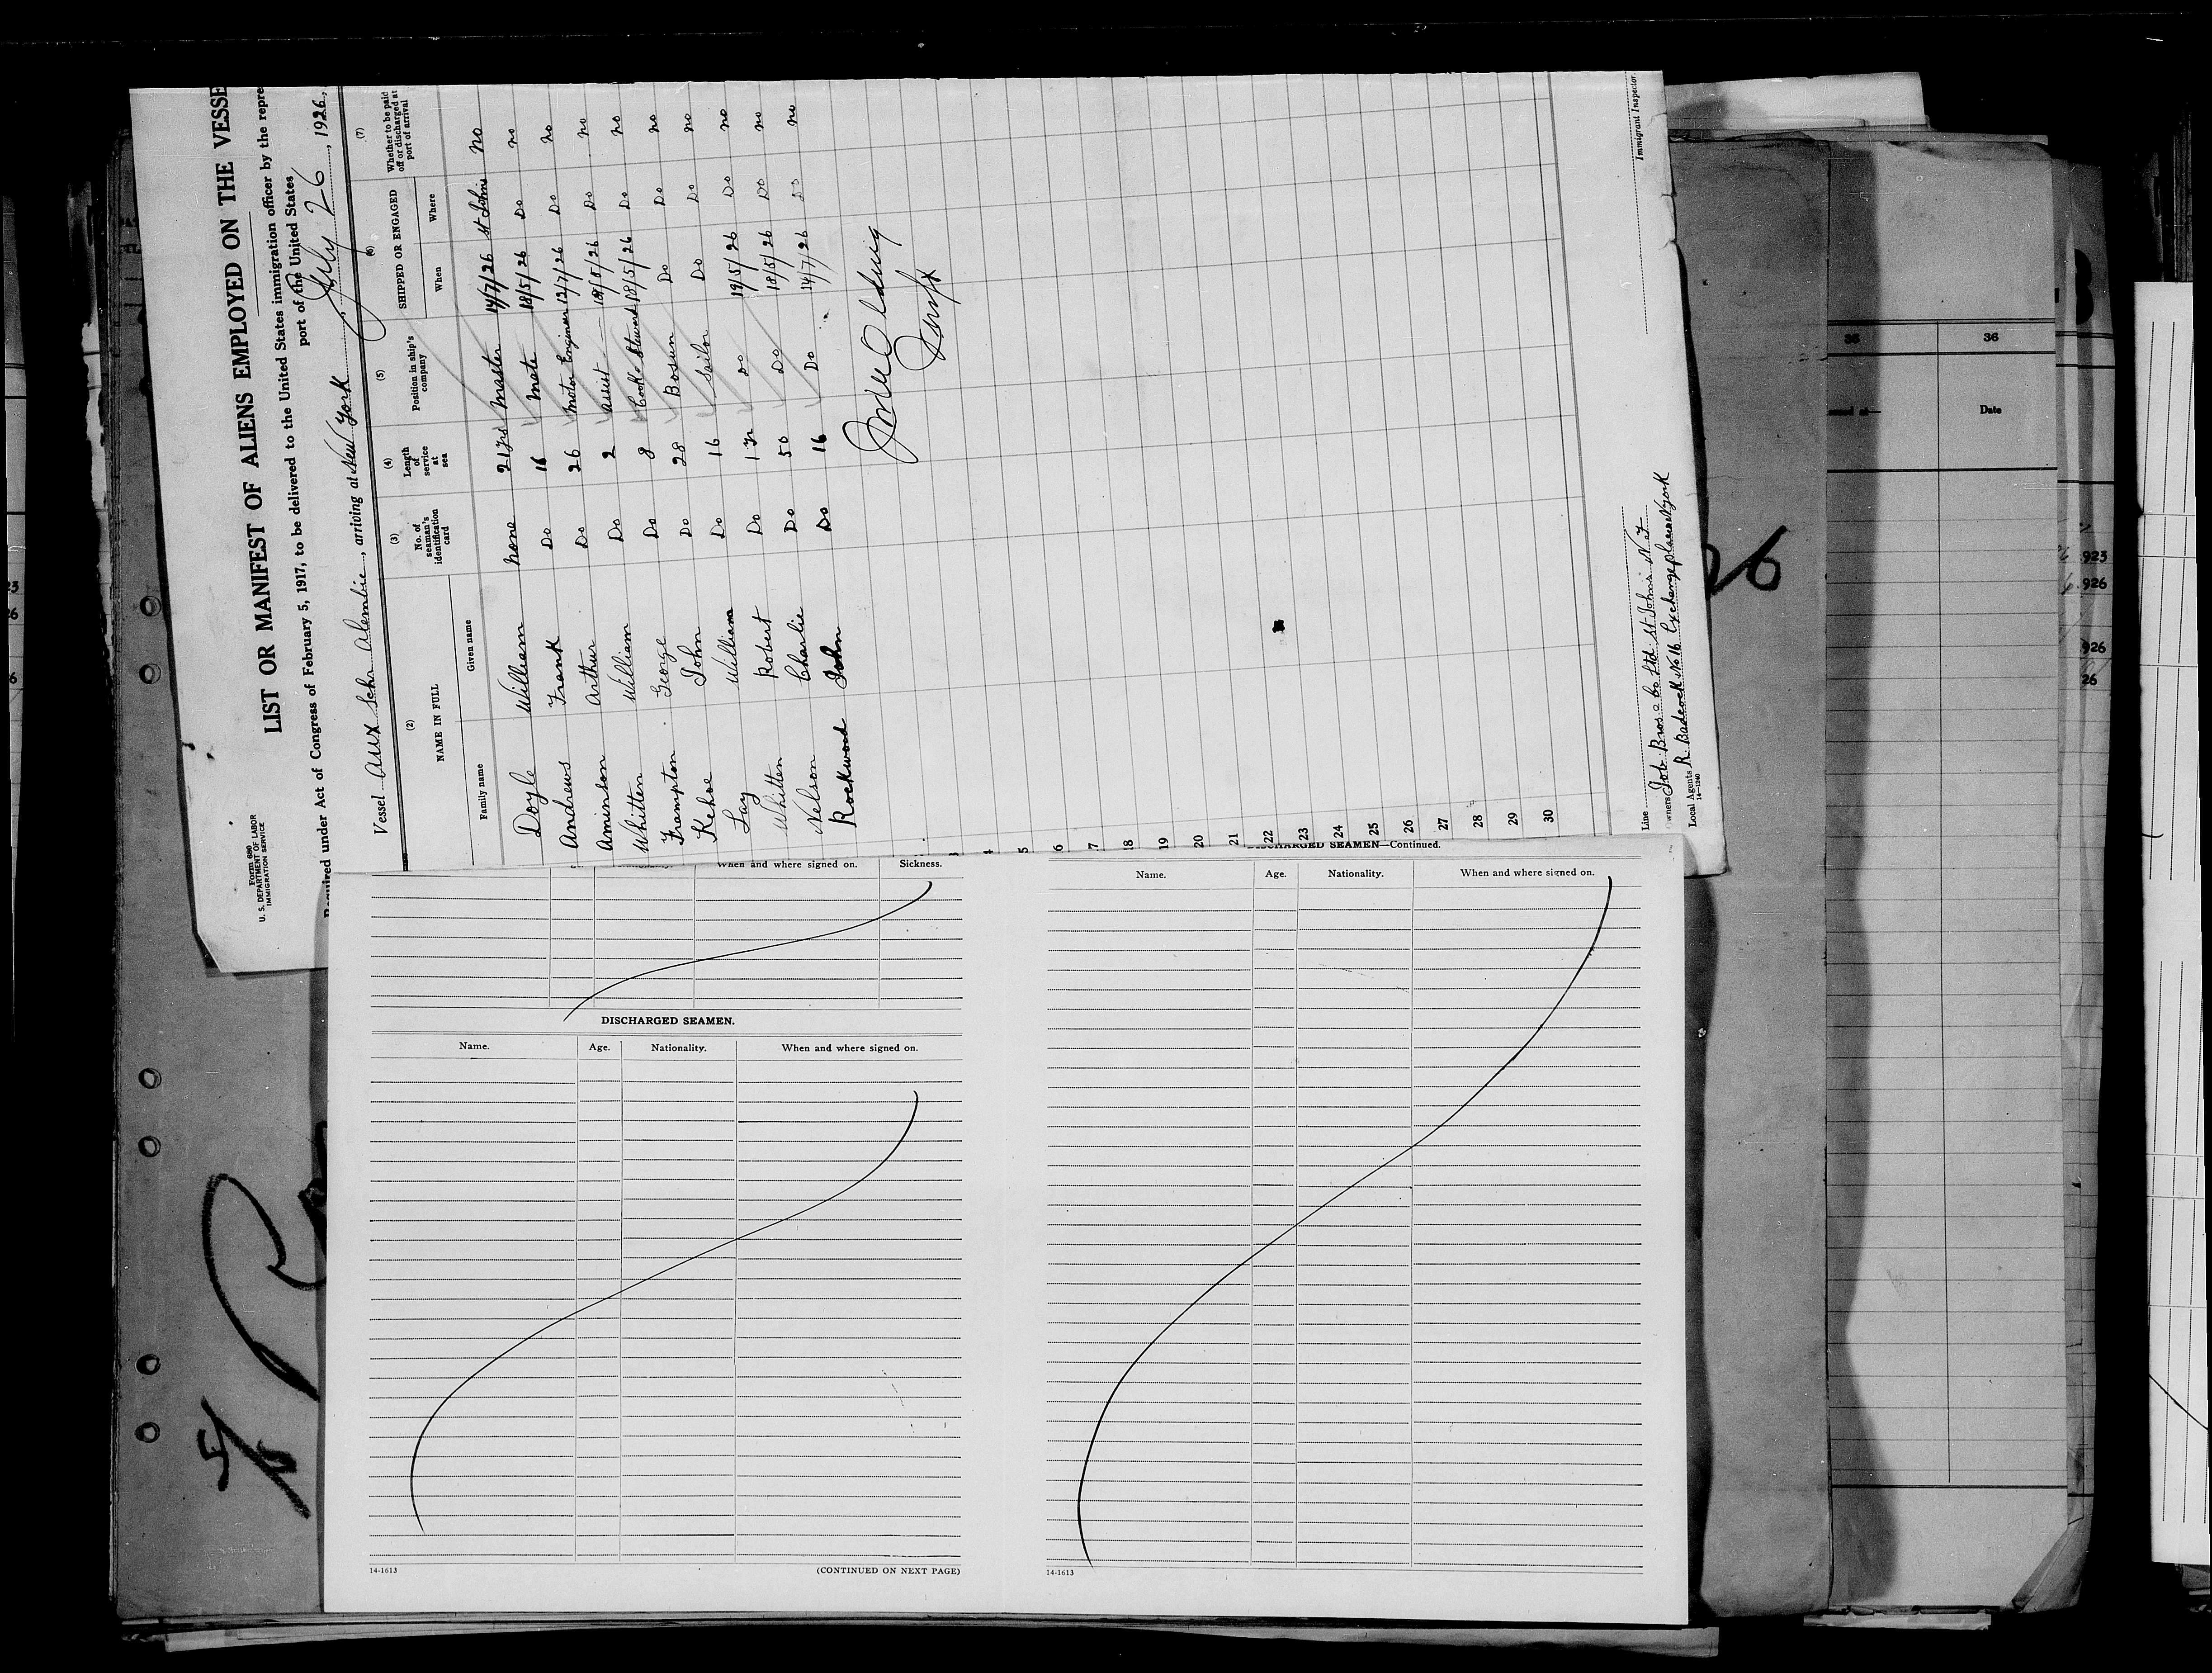 Form 680
U. S. DEPARTMENT OF LABOR
IMMIGRATION SERVICE
LIST OR MANIFEST OF ALIENS EMPLOYED ON THE VESSE
Required under Act of Congress of February 5, 1917, to be delivered to the United States immigration officer by the repre
port of the United States
Vessel Aux Schr , arriving at New York , July 26 , 1926.
(2) (3) (4) (5) (6) (7)
NAME IN FULL No. of seaman's identification card Length of service at sea Position in ship's company SHIPPED OR ENGAGED Whether to be paid off or discharged at port of arrival
Family name Given name When Where
Doyle William none 21 yrs master 14/7/26 St Johns no
Andrews Frank Do 16 mate 18/5/26 Do no
Aminson Arthur Do 26 motor Engineer 13/7/26 Do no
Whitten William Do 2 assist 18/5/26 Do no
Frampton George Do 8 Cook & Steward 18/5/26 Do no
Kehoe John Do 28 Bosun Do Do no
Lay William Do 16 Sailor Do Do no
Whitten Robert Do 1 yr Do 19/5/26 Do no
Nelson Charlie Do 50 Do 18/5/26 Do no
Rockwood John Do 16 Do 14/7/26 Do no
3
4
5
6
7
18
19
20
21
22
23
24
25
26
27
28
29
30
Immigrant Inspector.
Line
Owners Job Bros & Co Ltd St Johns N F
Local Agents R. Badcock No 16 Exchange place N york
14-1240
When and where signed on. Sickness.
DISCHARGED SEAMEN.
Name. Age. Nationality. When and where signed on.
14-1613 (CONTINUED ON NEXT PAGE)
DISCHARGED SEAMEN—Continued.
Name. Age. Nationality. When and where signed on.
14-1613
26
36
Date
923
926
926
26